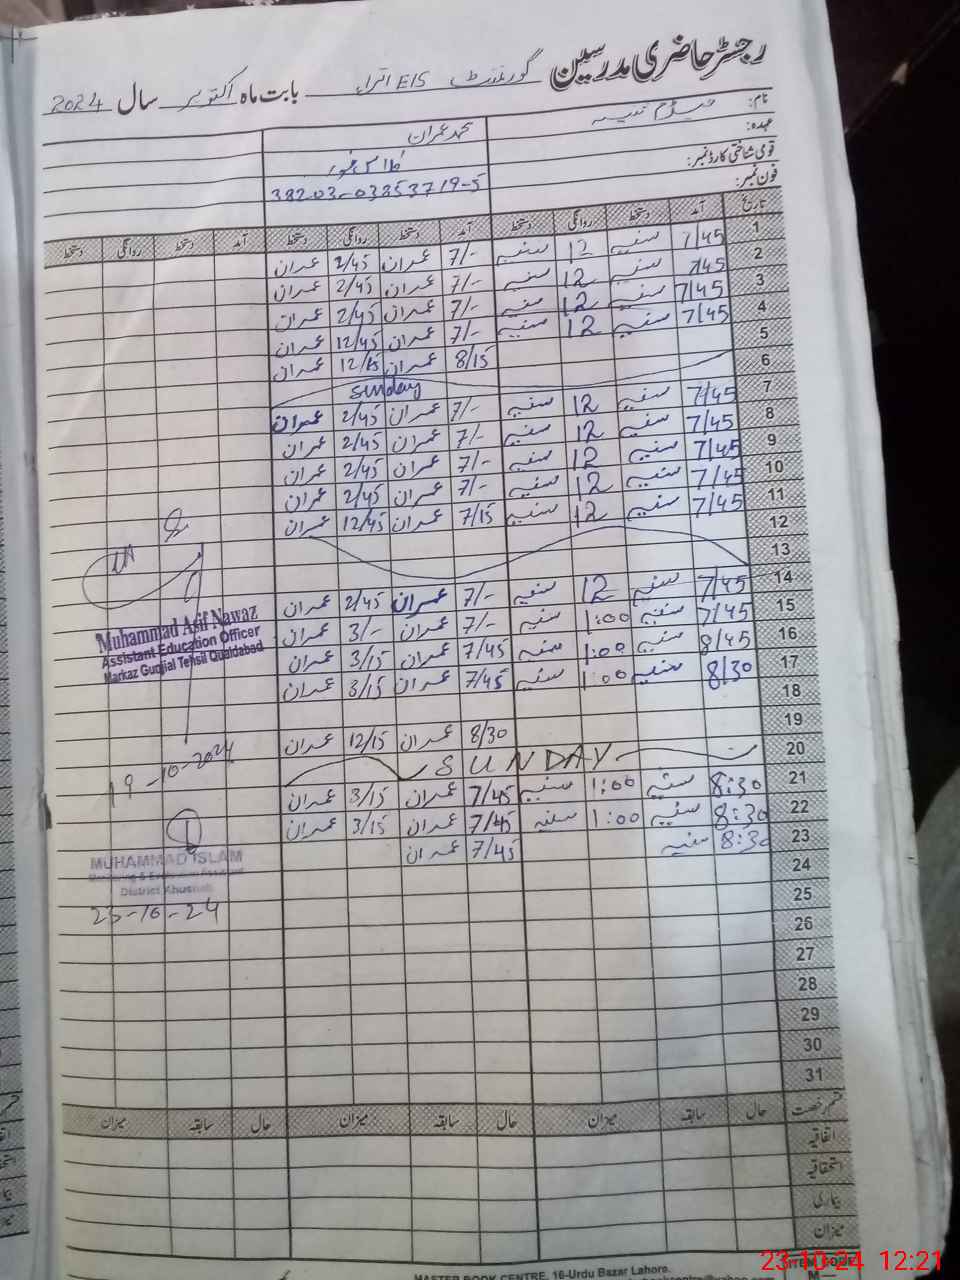 رجسٹر حاضری مدرسین گورنمنٹ EIS اترا بابت ماہ اکتوبر سال 2024
نام: میڈم محمد عمران
عہدہ: کلاس فور
قومی شناختی کارڈ نمبر: 38203-03853719-5
فون نمبر:
تاریخ آمد دستخط روانگی دستخط آمد دستخط روانگی دستخط آمد دستخط روانگی دستخط
1 7/45 سنیہ 12 سنیہ 7/- عمران 2/45 عمران
2 7/45 سنیہ 12 سنیہ 7/- عمران 2/45 عمران
3 7/45 سنیہ 12 سنیہ 7/- عمران 2/45 عمران
4 7/45 سنیہ 12 سنیہ 7/- عمران 12/45 عمران
5 8/15 عمران 12/15 عمران
6 Sunday
7 7/45 سنیہ 12 سنیہ 7/- عمران 2/45 عمران
8 7/45 سنیہ 12 سنیہ 7/- عمران 2/45 عمران
9 7/45 سنیہ 12 سنیہ 7/- عمران 2/45 عمران
10 7/45 سنیہ 12 سنیہ 7/- عمران 2/45 عمران
11 7/45 سنیہ 12 سنیہ 7/15 عمران 12/45 عمران
12
13
14 7/45 سنیہ 12 سنیہ 7/- عمران 2/45 عمران
15 7/45 سنیہ 1:00 سنیہ 7/- عمران 3/- عمران
16 8/45 سنیہ 1:00 سنیہ 7/45 عمران 3/15 عمران
17 8/30 سنیہ 1:00 سنیہ 7/45 عمران 3/15 عمران
18
19 8/30 عمران 12/15 عمران
20 SUNDAY
21 8:30 سنیہ 1:00 سنیہ 7/45 عمران 3/15 عمران
22 8:30 سنیہ 1:00 سنیہ 7/45 عمران 3/15 عمران
23 8:30 سنیہ 7/45 عمران
24
25
26
27
28
29
30
31
Muhammad Asif Nawaz
Assistant Education Officer
Markaz Gunjial Tehsil Quaidabad
19-10-2024
MUHAMMAD ISLAM
Monitoring & Evaluation Assistant
District Khushab
23-10-24
قسم رخصت حال سابقہ میزان حال سابقہ میزان حال سابقہ میزان
اتفاقیہ
استحقاقیہ
بیماری
میزان
ITEM CODE
M—
MASTER BOOK CENTRE, 16-Urdu Bazar Lahore.
23-10-24 12:21